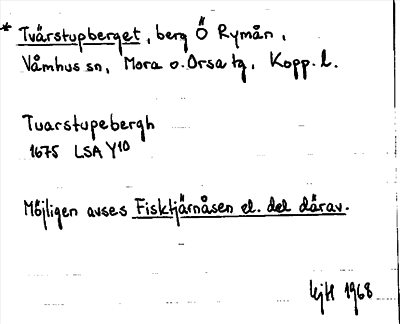 * Tvärstupberget, berg Ö Rymån,
Våmhus sn, Mora o. Orsa tg, Kopp. l.
Tvarstupebergh
1675 LSA Y10
Möjligen avses Fisktjärnåsen el. del därav.
1968